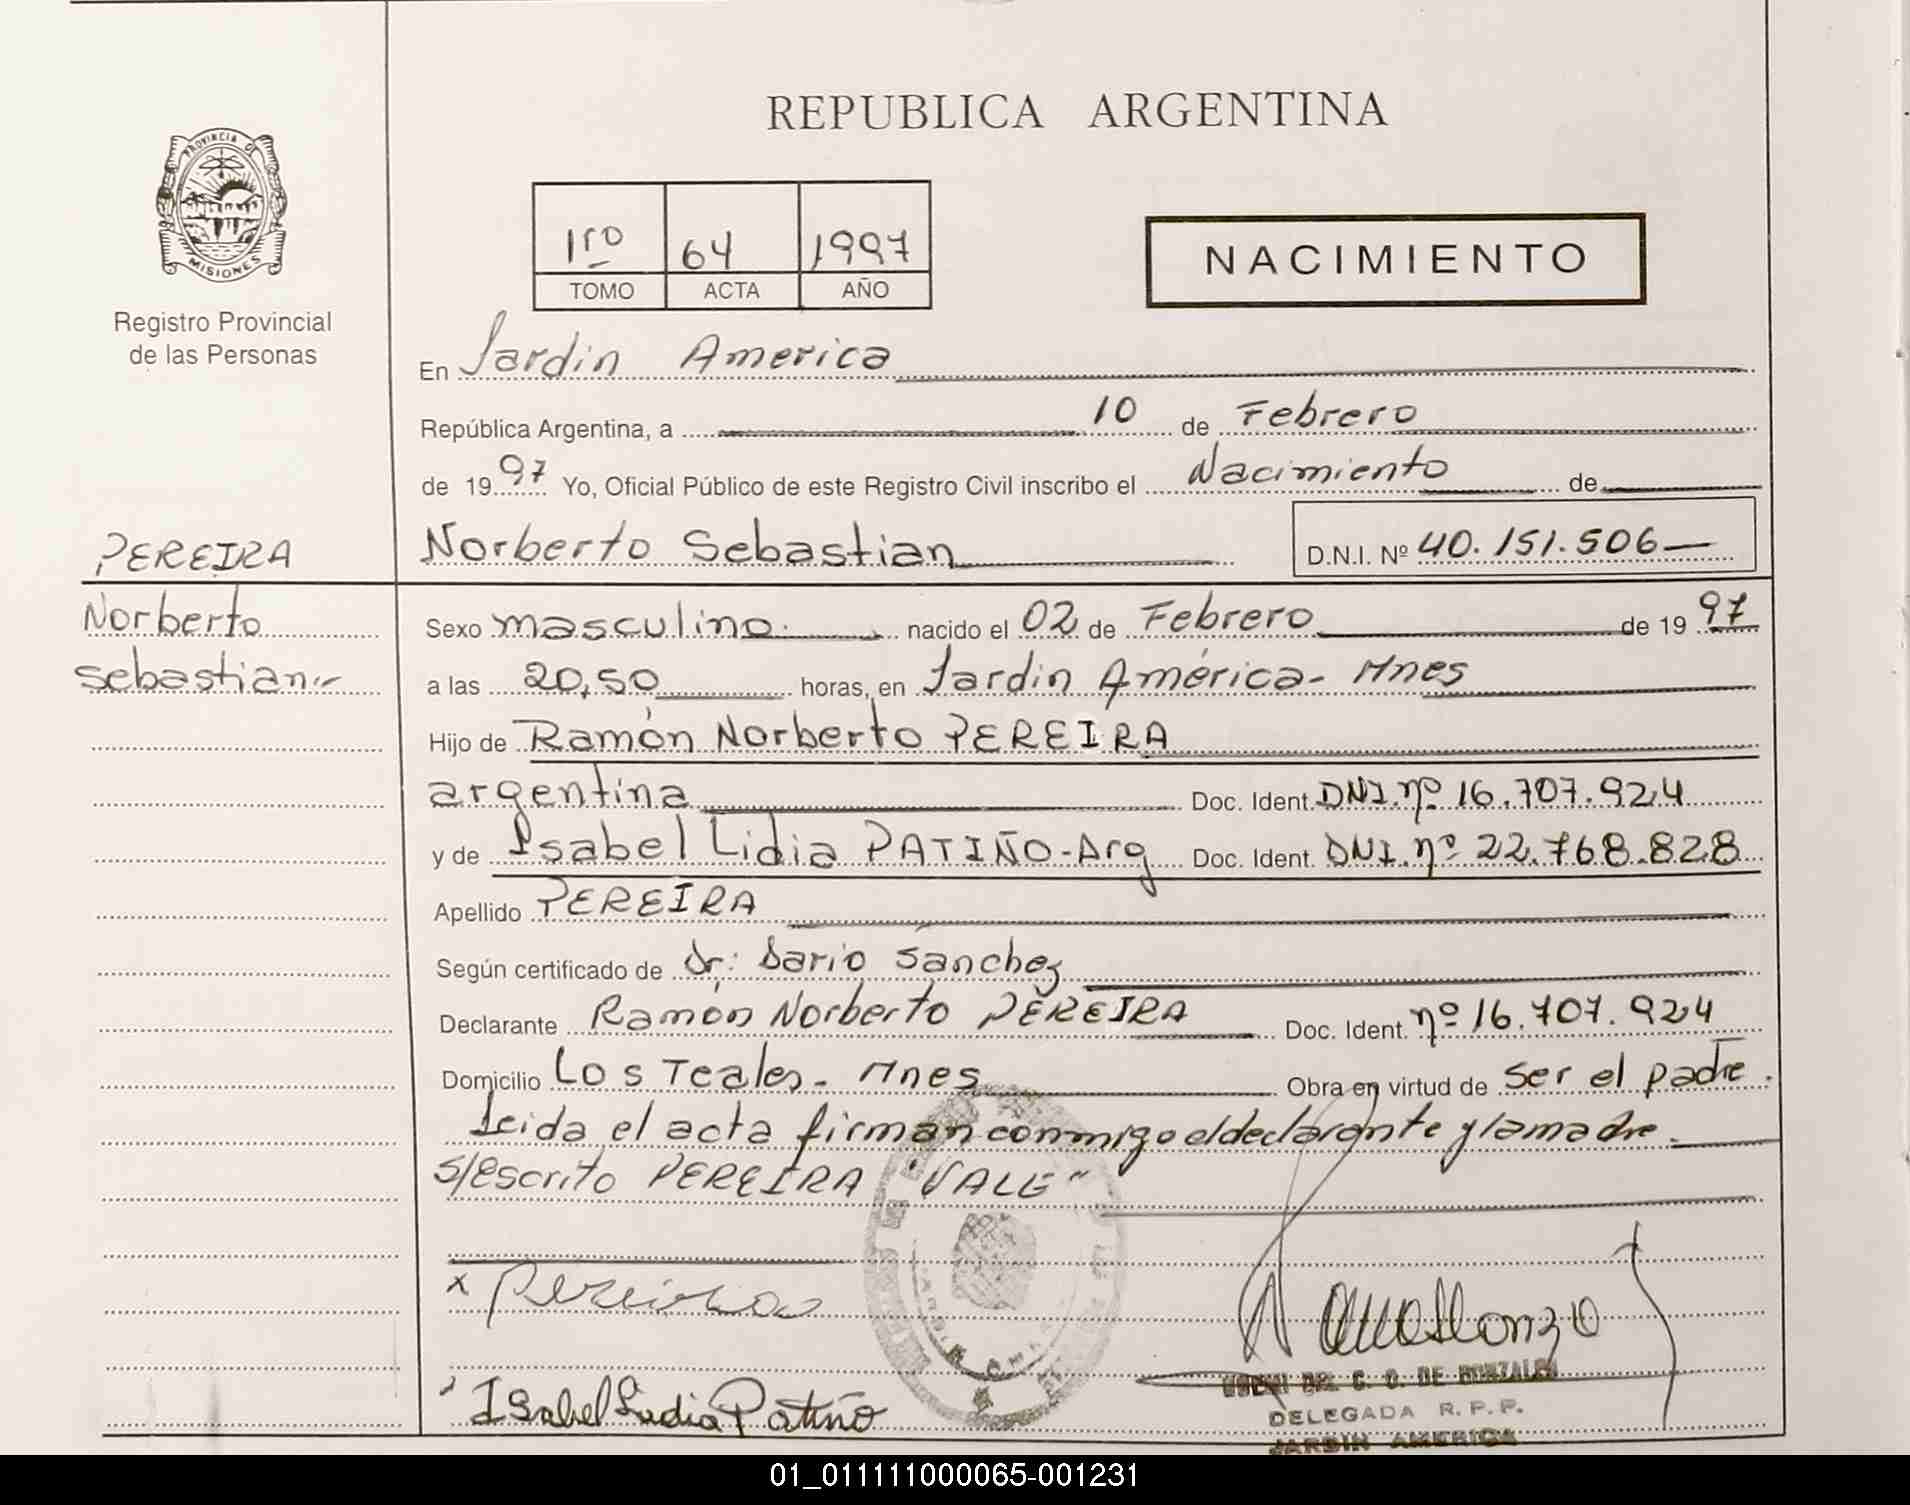 REPUBLICA ARGENTINA
PROVINCIA DE
MISIONES
Registro Provincial
de las Personas
1ro 64 1997
TOMO ACTA AÑO
NACIMIENTO
En Jardin America
República Argentina, a 10 de Febrero
de 1997 Yo, Oficial Público de este Registro Civil inscribo el Nacimiento de
PEREIRA
Norberto Sebastian D.N.I. Nº 40.151.506
Norberto
Sebastian.-
Sexo masculino. nacido el 02 de Febrero de 1997
a las 20,50 horas, en Jardin América- Mnes
Hijo de Ramón Norberto PEREIRA
argentina Doc. Ident. DNI. nº 16.707.924
y de Isabel Lidia PATIÑO-Arg Doc. Ident. DNI. nº 22.768.828
Apellido PEREIRA
Según certificado de Dr: Dario Sanchez
Declarante Ramón Norberto PEREIRA Doc. Ident. nº 16.707.924
Domicilio Los Teales- Mnes Obra en virtud de ser el padre.
Leida el acta firman conmigo el declarante y la madre.
S/Escrito PEREIRA "VALE"
x Pereira
Isabel Lidia Patiño
DEL C. O. DE GONZALEZ
DELEGADA R.P.P.
JARDIN AMERICA
01_011111000065-001231